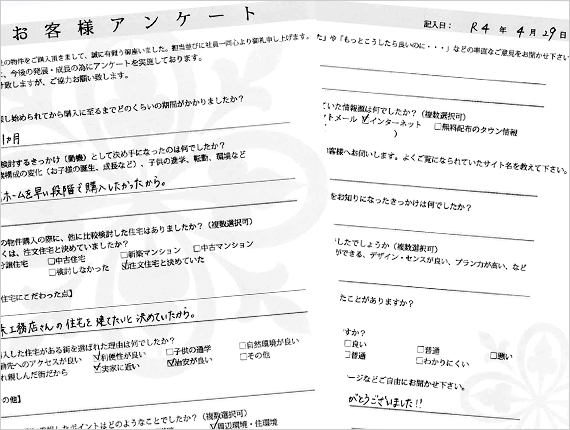 お客様アンケート
の物件をご購入頂きまして、誠に有難う御座いました。担当並びに社員一同心より御礼申し上げます。
、今後の発展・成長の為にアンケートを実施しております。
致しますが、ご協力お願い致します。
し始められてから購入に至るまでどのくらいの期間がかかりましたか？
1ヵ月
検討するきっかけ（動機）として決め手になったのは何でしたか？
構成の変化（お子様の誕生、成長など）、子供の進学、転勤、環境など
ホームを早い段階で購入したかったから。
の物件購入の際に、他に比較検討した住宅はありましたか？（複数選択可）
くは、注文住宅と決めていましたか？
譲住宅 □中古住宅 □新築マンション □中古マンション
□検討しなかった ☑注文住宅と決めていた
住宅にこだわった点】
工務店さんの住宅を建てたいと決めていたから。
入した住宅がある街を選ばれた理由は何でしたか？
務先へのアクセスが良い ☑利便性が良い □子供の通学 □自然環境が良い
れ親しんだ街だから ☑実家に近い ☑治安が良い □その他
の他】
したポイントはどのようなことでしたか？（複数選択可）
☑周辺環境・住環境
記入日： R4 年 4月 29日
た」や「もっとこうしたら良いのに・・・」などの率直なご意見をお聞かせ下さい。
ていた情報源は何でしたか？（複数選択可）
トメール ☑インターネット □無料配布のタウン情報
）
客様へお伺いします。よくご覧になられていたサイト名を教えて下さい。
をお知りになったきっかけは何でしたか？
したでしょうか（複数選択可）
ができる、デザイン・センスが良い、プラン力が高い、など
たことがありますか？
すか？
□良い □普通 □悪い
□普通 □わかりにくい
ージなどご自由にお聞かせ下さい。
がとうございました!!